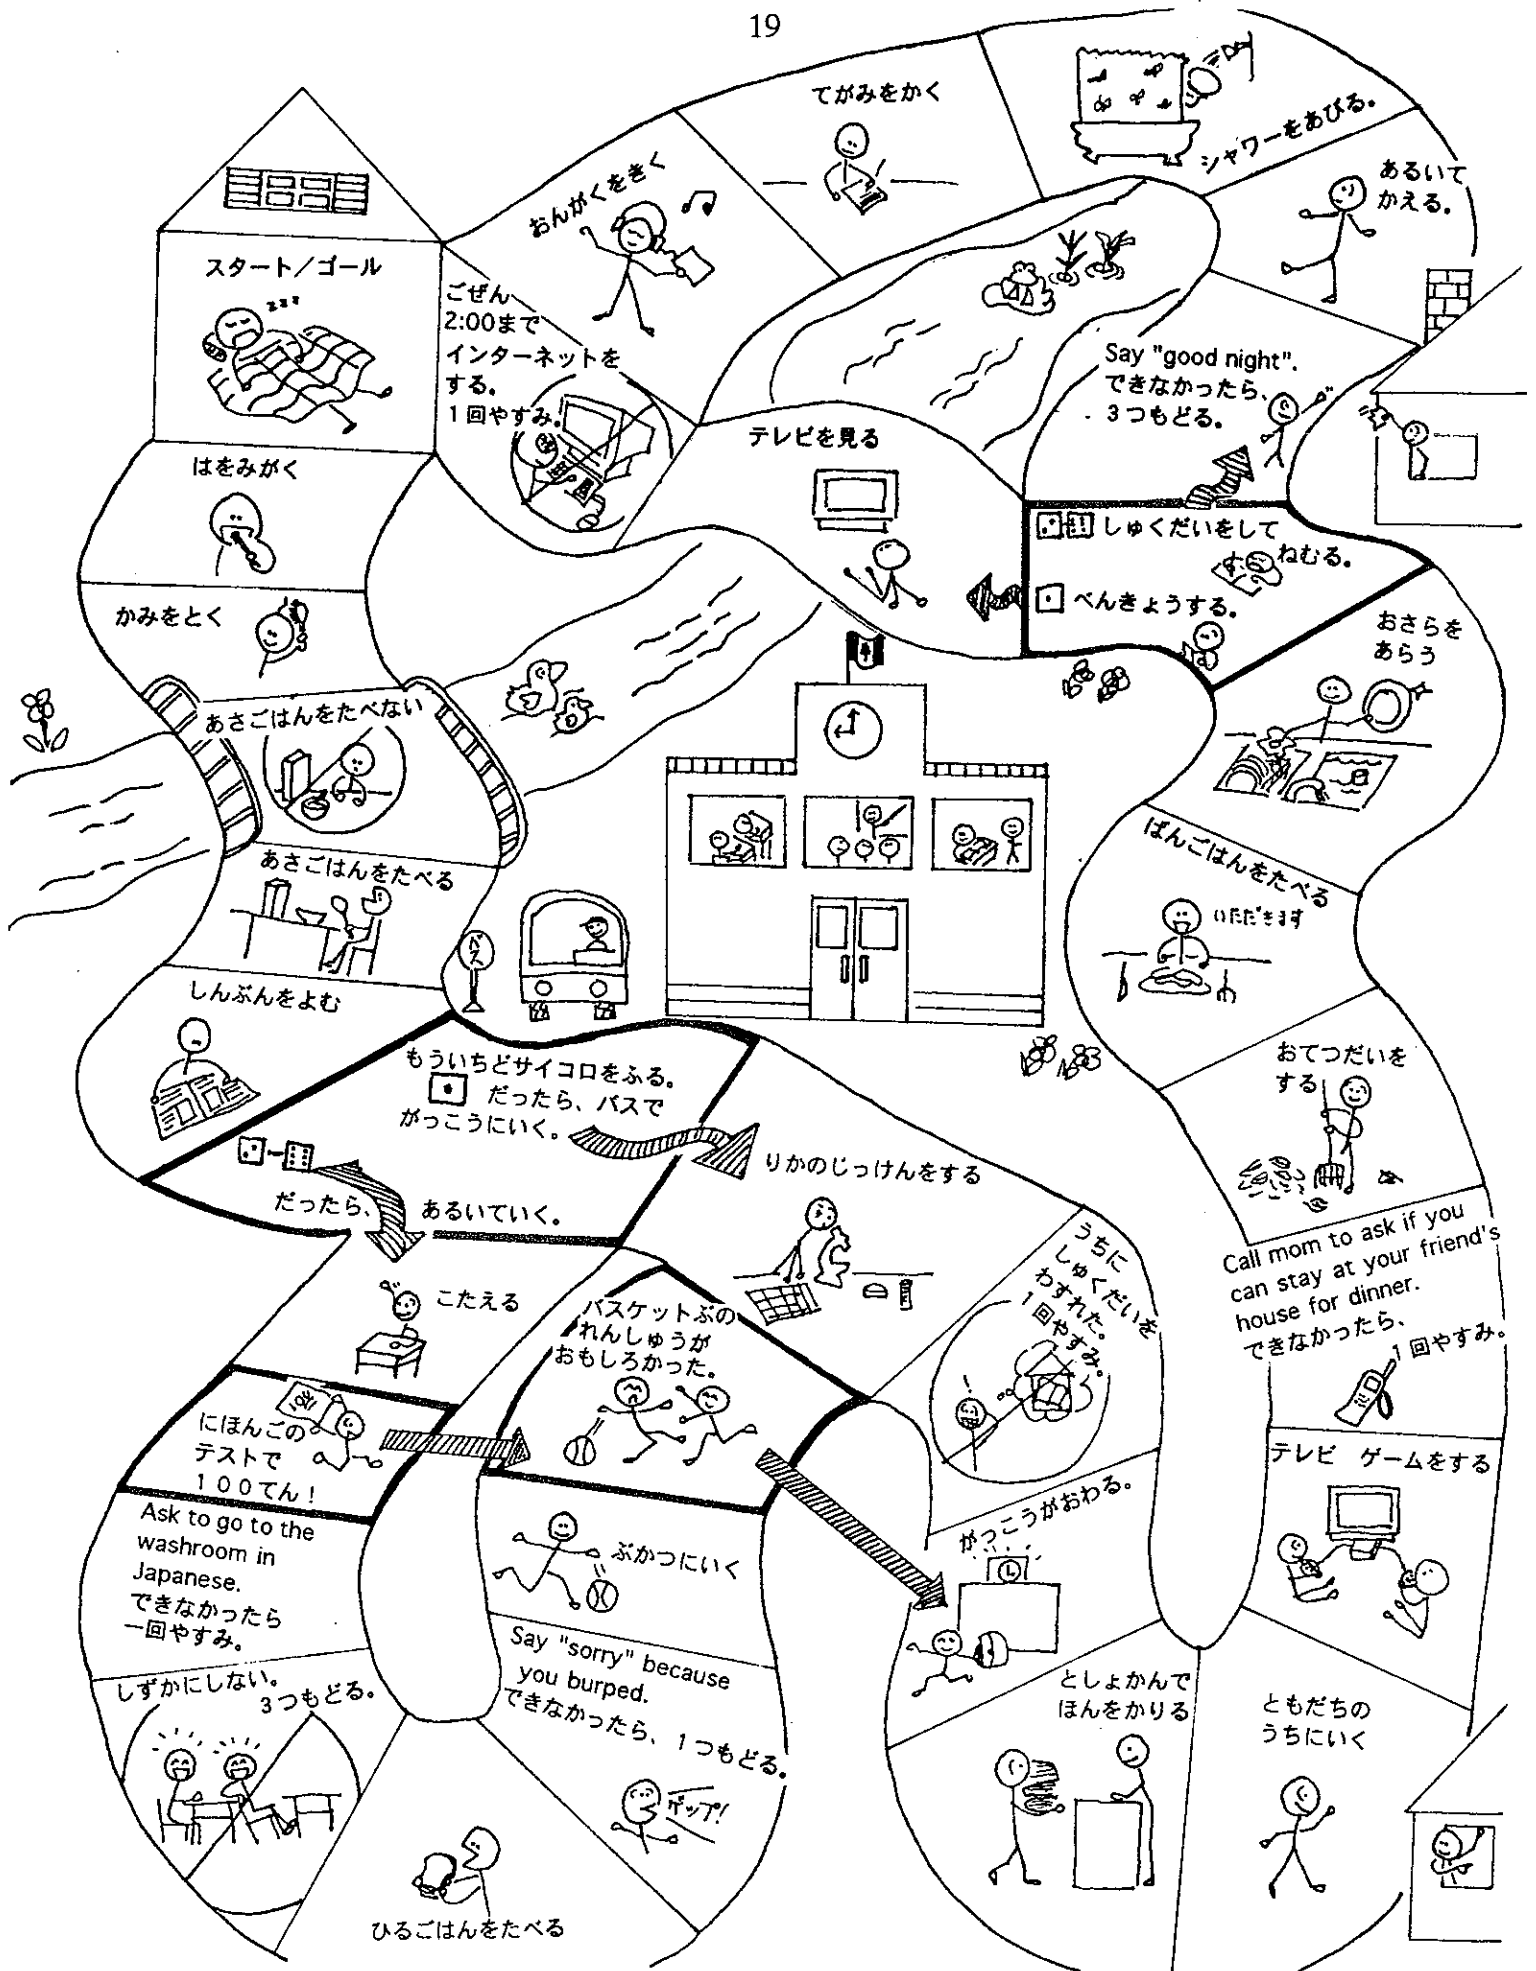 19
スタート/ゴール
zzz
はをみがく
かみをとく
あさごはんをたべない
あさごはんをたべる
しんぶんをよむ
バス
もういちどサイコロをふる。
だったら、バスで
がっこうにいく。
だったら、 あるいていく。
こたえる
にほんごの
テストで
100てん!
Ask to go to the
washroom in
Japanese.
できなかったら
一回やすみ。
しずかにしない。
3つもどる。
ひるごはんをたべる
Say "sorry" because
you burped.
できなかったら、1つもどる。
ゲップ!
ぶかつにいく
バスケットぶの
れんしゅうが
おもしろかった。
りかのじっけんをする
うちに
しゅくだいを
わすれた。
1回やすみ。
がっこうがおわる。
としょかんで
ほんをかりる
ともだちの
うちにいく
テレビ ゲームをする
Call mom to ask if you
can stay at your friend's
house for dinner.
できなかったら、
1回やすみ。
おてつだいを
する
ばんごはんをたべる
いただきます
おさらを
あらう
しゅくだいをして
ねむる。
べんきょうする。
Say "good night".
できなかったら、
3つもどる。
あるいて
かえる。
シャワーをあびる。
てがみをかく
おんがくをきく
ごぜん
2:00まで
インターネットを
する。
1回やすみ。
テレビを見る